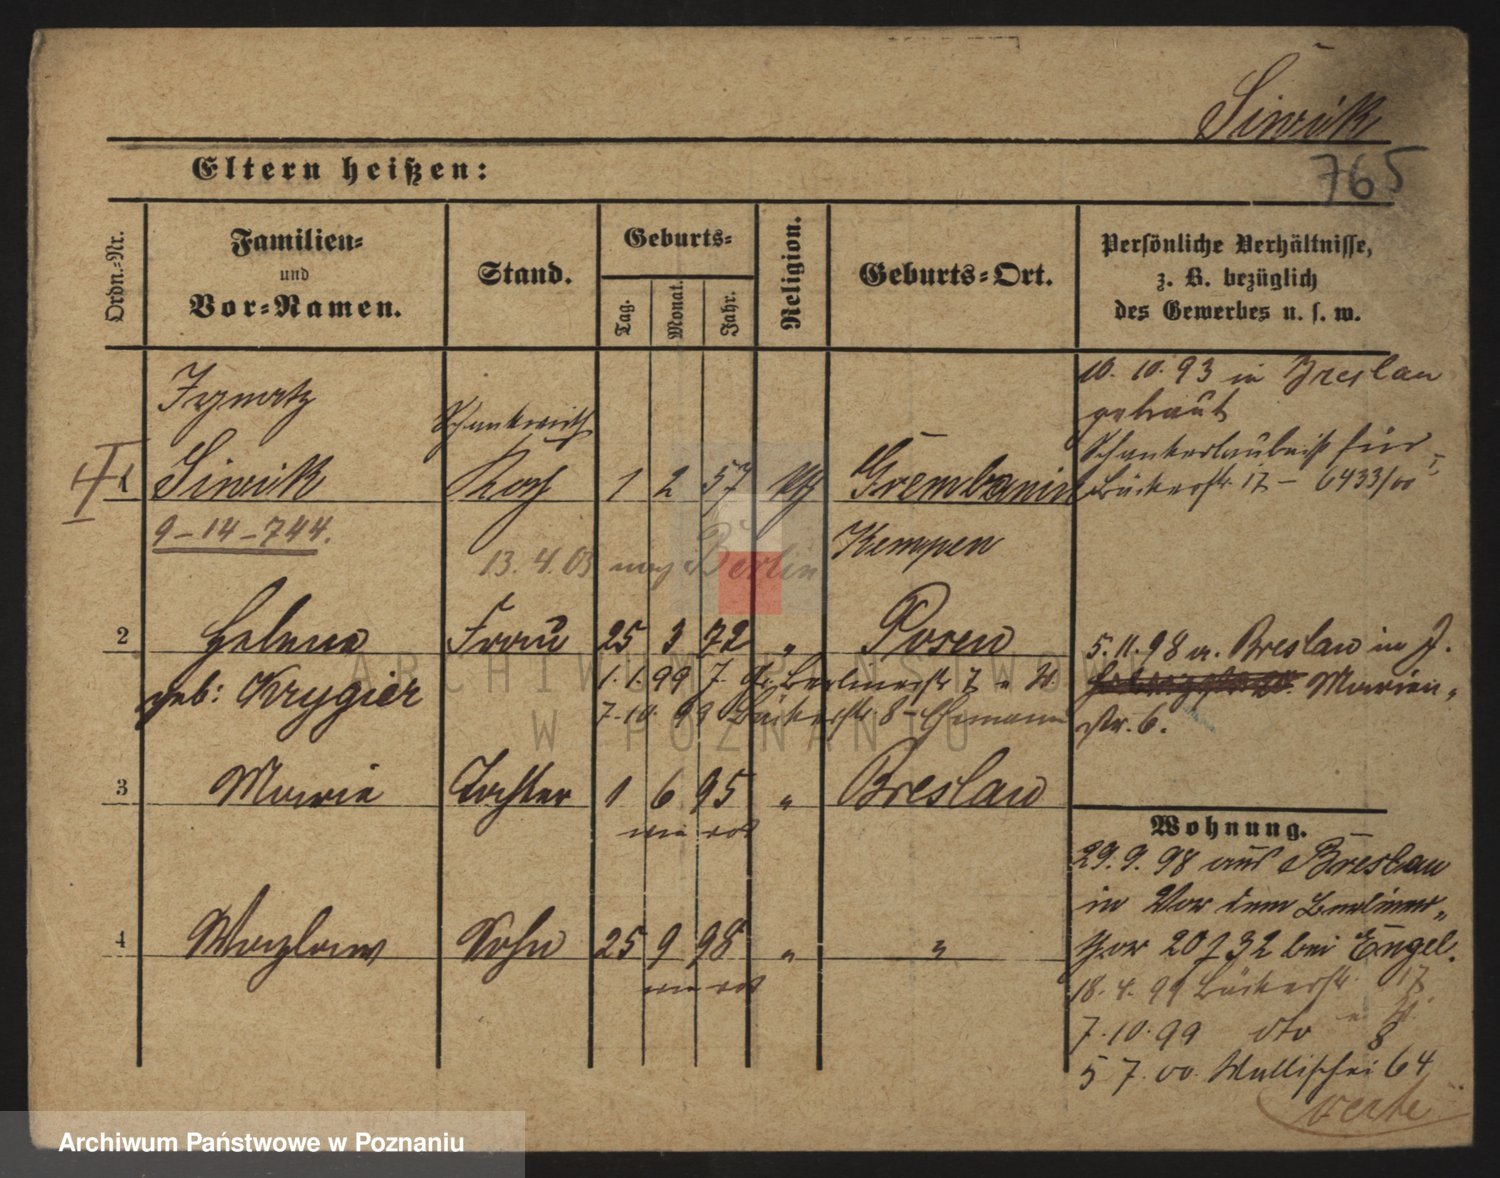 Siwik
765
Eltern heißen:
Ordn.-Nr.
Familien-
und
Vor-Namen.
Stand.
Geburts-
Tag.
Monat.
Jahr.
Religion.
Geburts-Ort.
Persönliche Verhältnisse,
z. B. bezüglich
des Gewerbes u. s. w.
10. 10. 93 in Breslau
getraut
Schankerlaubniß für
Bäckerstr. 17 – 6433/00
Ignatz
Schankwirth
1 Siwik Koch 1 2 57 kth Grembanin
9-14-744.
Kempen
13. 4. 03 nach Berlin
2 Helene Frau 25 3 72 " Posen
geb: Krygier
1. 1. 99 Berlinerstr 7
7. 10. 99 Bäckerstr. 8 – Ehemann
5. 11. 98 a. Breslau in J.
Marien-
str. 6.
3 Marie Tochter 1 6 95 " Breslau
wie vor
4 Wazlaw Sohn 25 9 98 " "
wie vor
Wohnung.
29. 9. 98 aus Breslau
in Vor dem Berliner-
thor 20 bei Engel.
18. 4. 99 Bäckerstr. 17
7. 10. 99 dto 8
5 7. 00. Wallischei 64
verte
ARCHIWUM PAŃSTWOWE
W POZNANIU
Archiwum Państwowe w Poznaniu